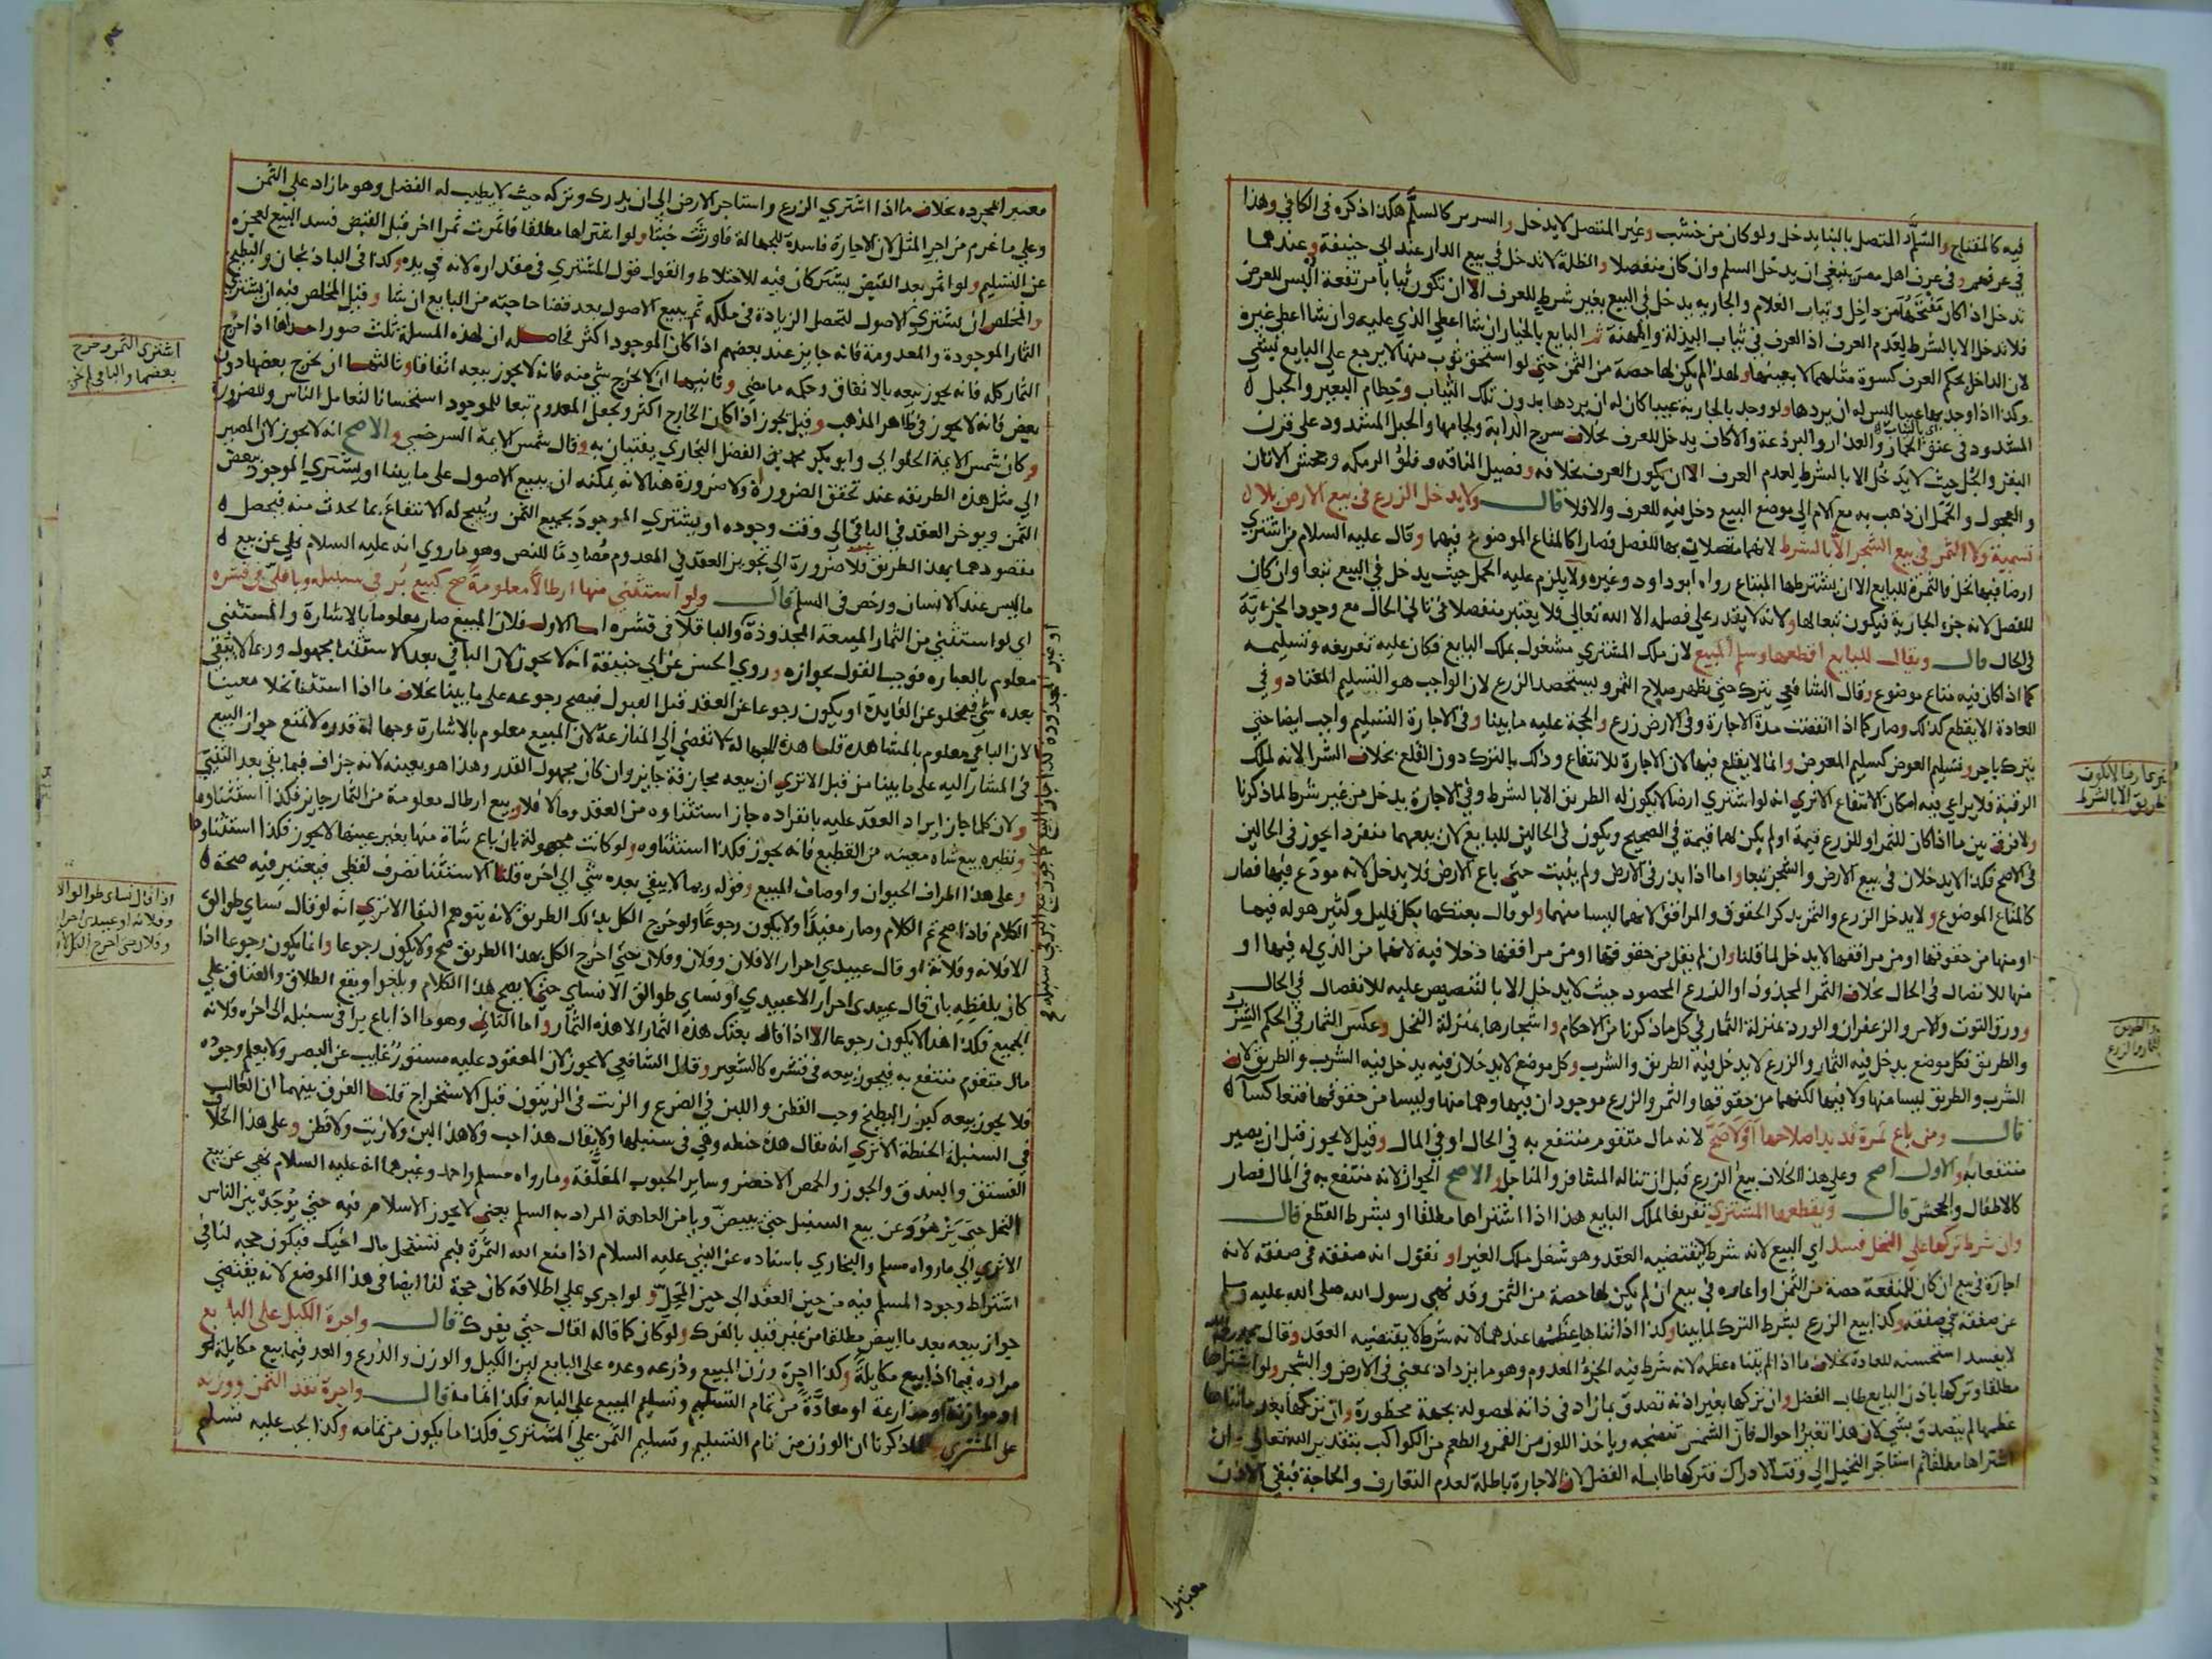 فيه كالمفتاح والسلم المتصل بالبنا يدخل ولو كان من خشب وغير المتصل لا يدخل والسرير كالسلم هكذا ذكره في الكافي وهذا
في عرفهم وفي عرف اهل مصر ينبغي ان يدخل السلم وان كان منفصلا والظلة لا تدخل في بيع الدار عند ابي حنيفة وعندهما
تدخل اذا كان مفتحها من داخل وثياب الغلام والجارية يدخل في البيع بغير شرط للعرف الا ان تكون ثيابا مرتفعة تلبس للعرض
فلا تدخل الا بالشرط لعدم العرف اذ العرف في ثياب البذلة والمهنة ثم البايع بالخيار ان شا اعطي الذي عليه وان شا اعطي غيره
لان الداخل بحكم العرف كسوة مثلهما لا بعينها ولهذا لم يكن لها حصة من الثمن حتي لو استحق ثوب منها لا يرجع علي البايع بشي
وكذا اذا وجد بها عيبا ليس له ان يردها ولو وجد بالجارية عيبا كان له ان يردها بدون تلك الثياب وخطام البعير والحبل
المشدود في عنق الحمار والعذار والبرذعة والاكاف يدخل للعرف بخلاف سرج الدابة ولجامها والحبل المشدود علي قرن
البقر والجل حيث لا يدخل الا بالشرط لعدم العرف الا ان يكون العرف بخلافه وفصيل الناقة وفلو الرمكة وجحش الاتان
والعجول والحمل ان ذهب به مع الام الي موضع البيع دخل فيه للعرف والا فلا قال ولا يدخل الزرع في بيع الارض بلا
تسمية ولا الثمر في بيع الشجر الا بالشرط لانهما متصلان بها للفصل فصارا كالمتاع الموضوع فيهما وقال عليه السلام من اشتري
ارضا فيها نخل فالثمرة للبايع الا ان يشترطها المبتاع رواه ابو داود وغيره ولا يلزم عليه الحمل حيث يدخل في البيع تبعا وان كان
للفصل لانه جزء الجارية فيكون تبعا لها ولانه لا يقدر علي فصله الا الله تعالي فلا يعتبر منفصلا في ثاني الحال مع وجود الجزئية
في الحال قال ويقال للبايع اقطعها وسلم المبيع لان ملك المشتري مشغول بملك البايع فكان عليه تفريغه وتسليمه
كما اذا كان فيه متاع موضوع وقال الشافعي يترك حتي يظهر صلاح الثمر ويستحصد الزرع لان الواجب هو التسليم المعتاد وفي
العادة لا يقطع كذلك وصار كما اذا انقضت مدة الاجارة وفي الارض زرع والحجة عليه ما بينا وفي الاجارة التسليم واجب ايضا حتي
يترك باجر وتسليم العوض كتسليم المعوض وانما لا يقلع فيها لان الاجارة للانتفاع وذلك بالترك دون القلع بخلاف الشرا لانه لملك
الرقبة فلا يراعي فيه امكان الانتفاع الا تري انه لو اشتري ارضا لا يكون له الطريق الا بالشرط وفي الاجارة يدخل من غير شرط لما ذكرنا
ولا فرق بين ما اذا كان للثمر او للزرع قيمة او لم يكن لهما قيمة في الصحيح ويكون في الحالين للبايع لان بيعهما منفردا يجوز في الحالين
في الاصح فكذا لا يدخلان في بيع الارض والشجر تبعا واما اذا بذر في الارض ولم ينبت حتي باع الارض فلا يدخل لانه مودع فيها فصار
كالمتاع الموضوع ولا يدخل الزرع والثمر بذكر الحقوق والمرافق لانهما ليسا منهما ولو قال بعتكها بكل قليل وكثير هو له فيها
او منها من حقوقها او من مرافقها لا يدخل لما قلنا وان لم يقل من حقوقها او من مرافقها دخلا فيه لانهما من الذي له فيها او
منها للاتصال في الحال بخلاف الثمر المجذوذ او الزرع المحصود حيث لا يدخل الا بالتنصيص عليه للانفصال في الحال
وورق التوت والاس والزعفران والورد بمنزلة الثمار في كل ما ذكرنا من الاحكام واشجارها بمنزلة النخل وعكس الثمار في الحكم الشرب
والطريق فكل موضع يدخل فيه الثمار والزرع لا يدخل فيه الطريق والشرب وكل موضع لا يدخلان فيه يدخل فيه الشرب والطريق لان
الشرب والطريق ليسا منها ولا فيها لكنهما من حقوقها والثمر والزرع موجودان فيها وهما منها وليسا من حقوقها فتعاكسا
قال ومن باع ثمرة قد بدا صلاحها او لا صح لانه مال متقوم منتفع به في الحال او في المال وقيل لا يجوز قبل ان يصير
منتفعا به والاول اصح وعلي هذا الخلاف بيع الزرع قبل ان تناله المشافر والمناجل والاصح الجواز لانه منتفع به في المال فصار
كالاطفال والجحش قال ويقطعها المشتري تفريغا لملك البايع هذا اذا اشتراها مطلقا او بشرط القطع قال
وان شرط تركها علي النخل فسد اي البيع لانه شرط لا يقتضيه العقد وهو شغل ملك الغير او نقول انه صفقة في صفقة لانه
اجارة في بيع ان كان للمنفعة حصة من الثمن او اعارة في بيع ان لم يكن لها حصة من الثمن وقد نهي رسول الله صلي الله عليه وسلم
عن صفقة في صفقة وكذا بيع الزرع بشرط الترك لما بينا وكذا اذا تناها عظمها عندهما لانه شرط لا يقتضيه العقد وقال محمد رحمه الله
لا يفسد استحسنه للعادة بخلاف ما اذا لم يتناه عظمه لانه شرط فيه الجزء المعدوم وهو ما يزداد بمعني في الارض والشجر ولو اشتراها
مطلقا وتركها باذن البايع طاب الفضل وان تركها بغير اذنه تصدق بما زاد في ذاته لحصوله بجهة محظورة وان تركها بعد ما تناها
عظمها لم يتصدق بشي لان هذا تغير احوال فان الشمس تنضجه وياخذ اللون من القمر والطعم من الكواكب بتقدير الله تعالي وان
اشتراها مطلقا ثم استاجر النخيل الي وقت الادراك فتركها طاب له الفضل لان الاجارة باطلة لعدم التعارف والحاجة فبقي الاذن
معتبرا
طريق الا بالشرط
معتبرا بمجرده بخلاف ما اذا اشتري الزرع واستاجر الارض الي ان يدرك وتركه حيث لا يطيب له الفضل وهو ما زاد علي الثمن
وعلي ما غرم من اجر المثل لان الاجارة فاسدة للجهالة فاورثت خبثا ولو اشتراها مطلقا فاثمرت ثمرا اخر قبل القبض فسد البيع لعجزه
عن التسليم ولو اثمر بعد القبض يشتركان فيه للاختلاط والقول قول المشتري في مقداره لانه في يده وكذا في الباذنجان والبطيخ
والمخلص ان يشتري الاصول لتحصل الزيادة في ملكه ثم يبيع الاصول بعد قضا حاجته من البايع ان شا وقيل المخلص فيه ان يشتري
الثمار الموجودة والمعدومة فانه جايز عند بعضهم اذا كان الموجود اكثر فحاصله ان لهذه المسلة ثلث صور احداها اذا خرج
الثمار كله فانه يجوز بيعه بالاتفاق وحكمه ما مضي وثانيها ان لا يخرج شي منه فانه لا يجوز بيعه اتفاقا وثالثها ان يخرج بعضها دون
بعض فانه لا يجوز في ظاهر المذهب وقيل يجوز اذا كان الخارج اكثر ويجعل المعدوم تبعا للموجود استحسانا لتعامل الناس وللضرورة
وكان شمس الايمة الحلواني وابو بكر محمد بن الفضل البخاري يفتيان به وقال شمس الايمة السرخسي والاصح انه لا يجوز لان المصير
الي مثل هذه الطريقة عند تحقق الضرورة ولا ضرورة هنا لانه يمكنه ان يبيع الاصول علي ما بينا او يشتري الموجود ببعض
الثمن ويوخر العقد في الباقي الي وقت وجوده او يشتري الموجود بجميع الثمن ويبيح له الانتفاع بما يحدث منه فيحصل
مقصودهما بهذا الطريق فلا ضرورة الي تجويز العقد في المعدوم مصادما للنص وهو ما روي انه عليه السلام نهي عن بيع
ما ليس عند الانسان ورخص في السلم قال ولو استثني منها ارطالا معلومة صح كبيع بر في سنبله وباقلي في قشره
اي لو استثني من الثمار المبيعة المجذوذة والباقلا في قشره اما الاول فلان المبيع صار معلوما بالاشارة والمستثني
معلوم بالعبارة فوجب القول بجوازه وروي الحسن عن ابي حنيفة انه لا يجوز لان الباقي بعد الاستثنا مجهول وربما لا يبقي
بعده شي فيخلو عن الفايدة او يكون رجوعا عن العقد قبل القبول فيصح رجوعه علي ما بينا بخلاف ما اذا استثنا نخلا معينا
لان الباقي معلوم بالمشاهدة قلنا هذه الجهالة لا تفضي الي المنازعة لان المبيع معلوم بالاشارة وجهالة قدره لا تمنع جواز البيع
في المشار اليه علي ما بينا من قبل الا تري ان بيعه مجازفة جايز وان كان مجهول القدر وهذا هو بعينه لانه جزاف فيما بقي بعد الثنيا
ولان كلما جاز ايراد العقد عليه بانفراده جاز استثناوه من العقد وما لا فلا وبيع ارطال معلومة من الثمار جايز فكذا استثناوها
ونظيره بيع شاه معينه من القطيع فانه يجوز فكذا استثناوه ولو كانت مجهولة بان باع شاة منها بغير عينها لا يجوز فكذا استثناوها
وعلي هذا اطراف الحيوان واوصاف المبيع وقوله ربما لا يبقي بعده شي الي اخره قلنا الاستثنا تصرف لفظي فيعتبر فيه صحة
الكلام فاذا صح تم الكلام وصار مفيدا ولا يكون رجوعا ولو خرج الكل بذلك الطريق لانه يتوهم البقا الا تري انه لو قال نساي طوالق
الا فلانه وفلانة او قال عبيدي احرار الا فلان وفلان وفلان حتي اخرج الكل بهذا الطريق صح ولا يكون رجوعا وانما يكون رجوعا اذا
كان بلفظه بان قال عبيدي احرار الا عبيدي او نساي طوالق الا نساي حتي لا يصح هذا الكلام ويلغوا ويقع الطلاق والعتاق علي
الجميع فكذا هذا لا يكون رجوعا الا اذا قال بعتك هذه الثمار الا هذه الثمار واما الثاني وهو ما اذا باع برا في سنبله الي اخره فلانه
مال متقوم منتفع به فيجوز بيعه في قشره كالشعير وقال الشافعي لا يجوز لان المعقود عليه مستور غايب عن البصر ولا يعلم وجوده
فلا يجوز بيعه كبزر البطيخ وحب القطن واللبن في الضرع والزيت في الزيتون قبل الاستخراج قلنا الفرق بينهما ان الغالب
في السنبلة الحنطة الا تري انه يقال هذه حنطه وهي في سنبلها ولا يقال هذا حب ولا هذا لبن ولا زيت ولا قطن وعلي هذا الخلاف
الفستق والبندق والجوز والحمص الاخضر وساير الحبوب المغلفة وما رواه مسلم واحمد وغيرهما انه عليه السلام نهي عن بيع
النخل حتي يزهو وعن بيع السنبل حتي يبيض ويامن العاهة المراد به السلم يعني لا يجوز الاسلام فيه حتي يوجد بين الناس
الا تري الي ما رواه مسلم والبخاري باسناده عن النبي عليه السلام اذا منع الله الثمرة فبم تستحل مال اخيك فيكون حجه لنا في
اشتراط وجود المسلم فيه من حين العقد الي حين المحل ولو اجري علي اطلاقه كان حجة لنا ايضا في هذا الموضع لانه يقتضي
جواز بيعه بعد ما ابيض مطلقا من غير قيد بالفرك ولو كان كما قاله لقال حتي يفرك قال واجرة الكيل علي البايع
مراده فيما اذا بيع مكايلة وكذا اجرة وزن المبيع وذرعه وعده علي البايع لان الكيل والوزن والذرع والعد فيما بيع مكايلة او
او موازنة او مذارعة او معادة من تمام التسليم وتسليم المبيع علي البايع فكذا اتمامه قال واجرة نقد الثمن ووزنه
علي المشتري لما ذكرنا ان الوزن من تمام التسليم وتسليم الثمن علي المشتري فكذا ما يكون من تمامه وكذا يجب عليه تسليم
اشتري الثمر وخرج
بعضها والباقي لم يخرج
اذا قال نساي طوالق الا
وفلانه او عبيدي احرار